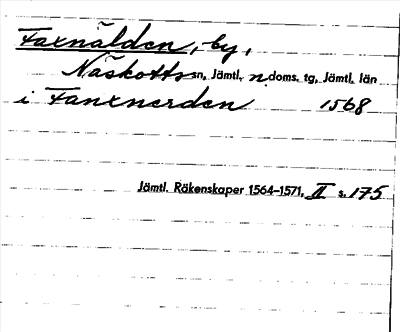 Faxnälden, by,
Näskotts sn, Jämtl. n doms. tg, Jämtl. län
i Fanxnerden 1568
Jämtl. Räkenskaper 1564-1571, II s. 175